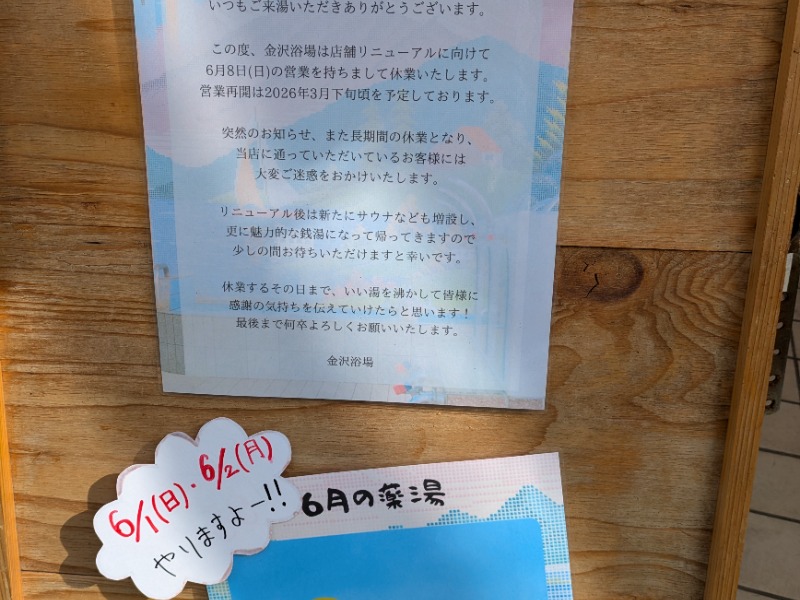 いつもご来湯いただきありがとうございます。
この度、金沢浴場は店舗リニューアルに向けて
6月8日(日)の営業を持ちまして休業いたします。
営業再開は2026年3月下旬頃を予定しております。
突然のお知らせ、また長期間の休業となり、
当店に通っていただいているお客様には
大変ご迷惑をおかけいたします。
リニューアル後は新たにサウナなども増設し、
更に魅力的な銭湯になって帰ってきますので
少しの間お待ちいただけますと幸いです。
休業するその日まで、いい湯を沸かして皆様に
感謝の気持ちを伝えていけたらと思います！
最後まで何卒よろしくお願いいたします。
金沢浴場
6/1(日)・6/2(月)
やりますよー!!
6月の薬湯